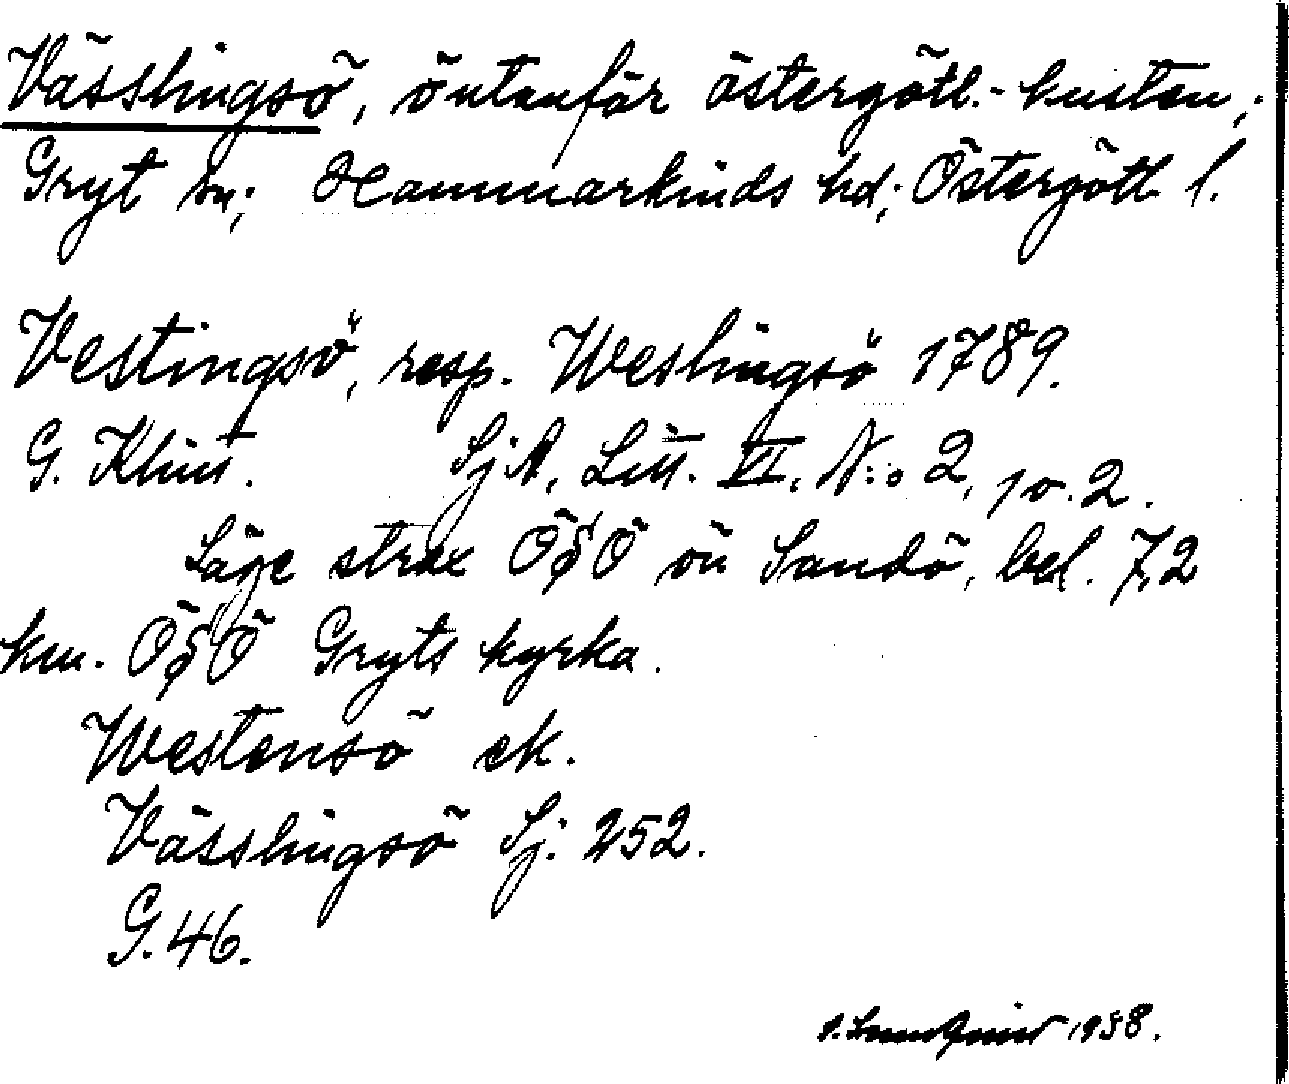 Vässlingsö, ö utanför östergötl.-kusten,;
Gryt sn; Hammarkinds hd; Östergötl l.
Vestingsö, resp. Weslingsö 1789.
G. Klint. SjA, Litt. VI. N:o 2, p. 2.
Läge strax ÖSÖ om Sandö, bel. 7,2
km. ÖSÖ Gryts kyrka.
Westensö ek.
Vässlingsö Sj. 252.
G. 46.
1938.